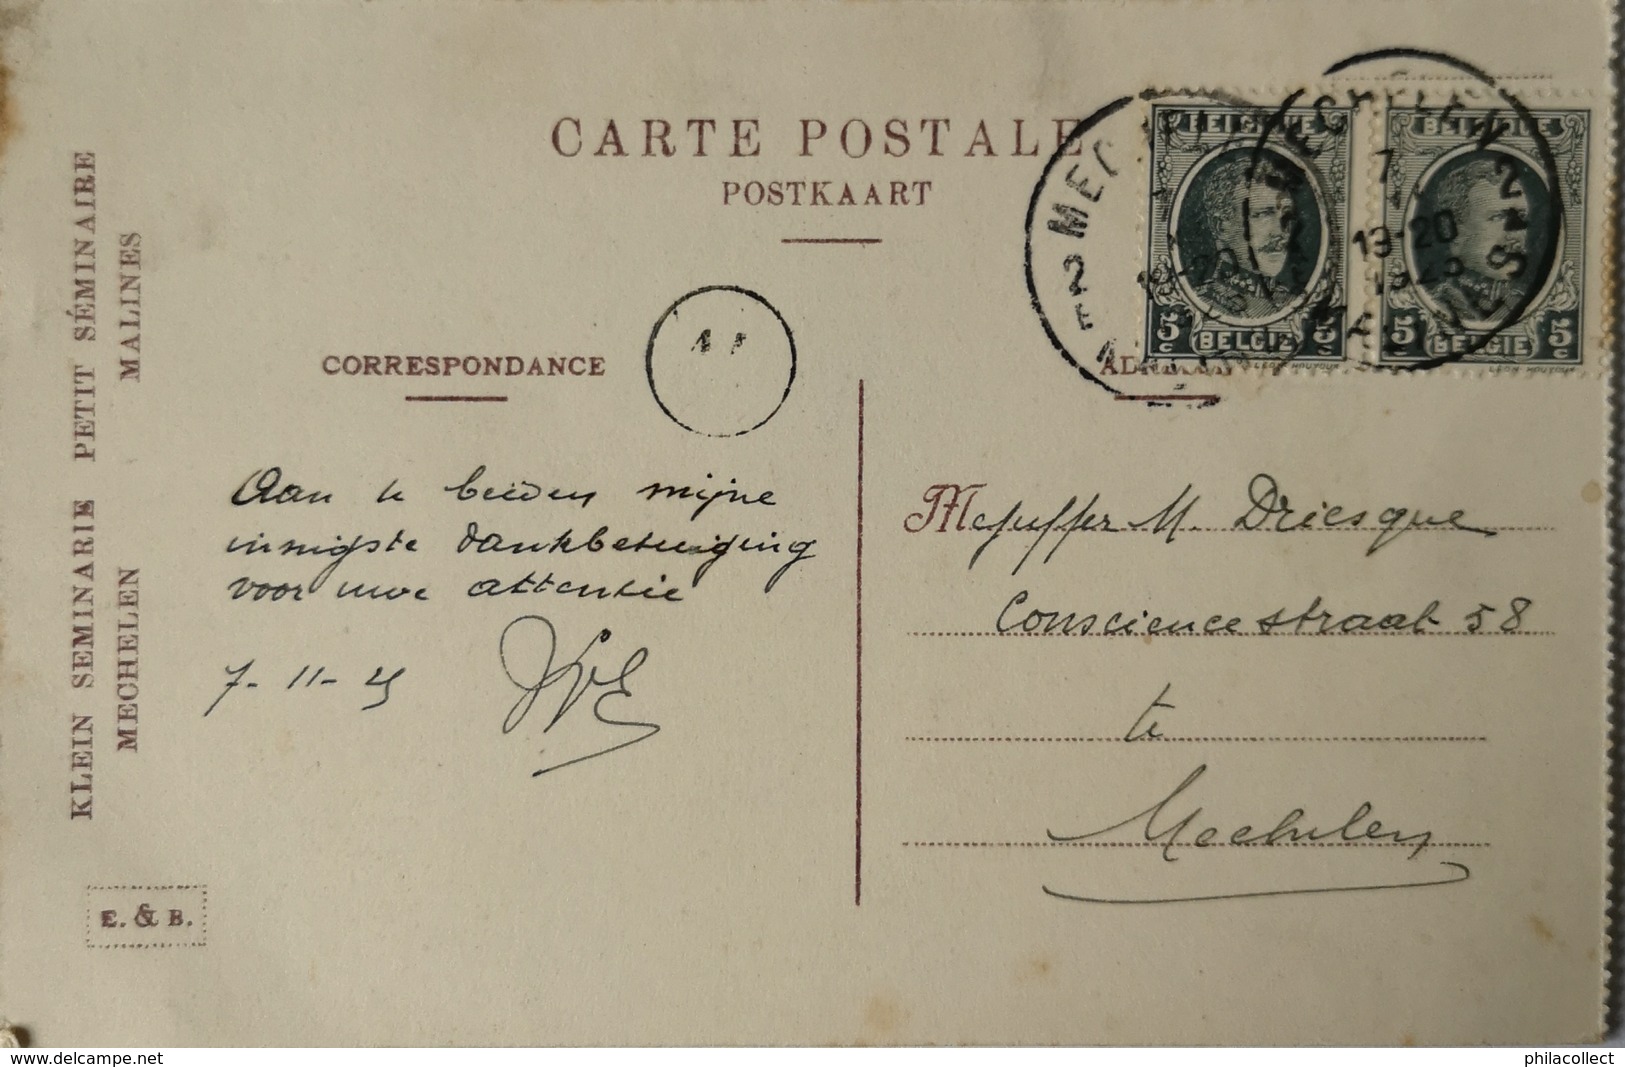 CARTE POSTALE
POSTKAART
KLEIN SEMINARIE PETIT SÉMINAIRE
MECHELEN MALINES
CORRESPONDANCE
Aan u beiden mijne
innigste dankbetuiging
voor uwe attentie
7-11-25
E. & B.
BELGIQUE
5c BELGIE 5c
BELGIQUE
5c BELGIE 5c
MECHELEN
7
13-20
2
MALINES
Mejuffer M. Driesque
Consciencestraat 58
te
Mechelen
delcampe.net
philacollect